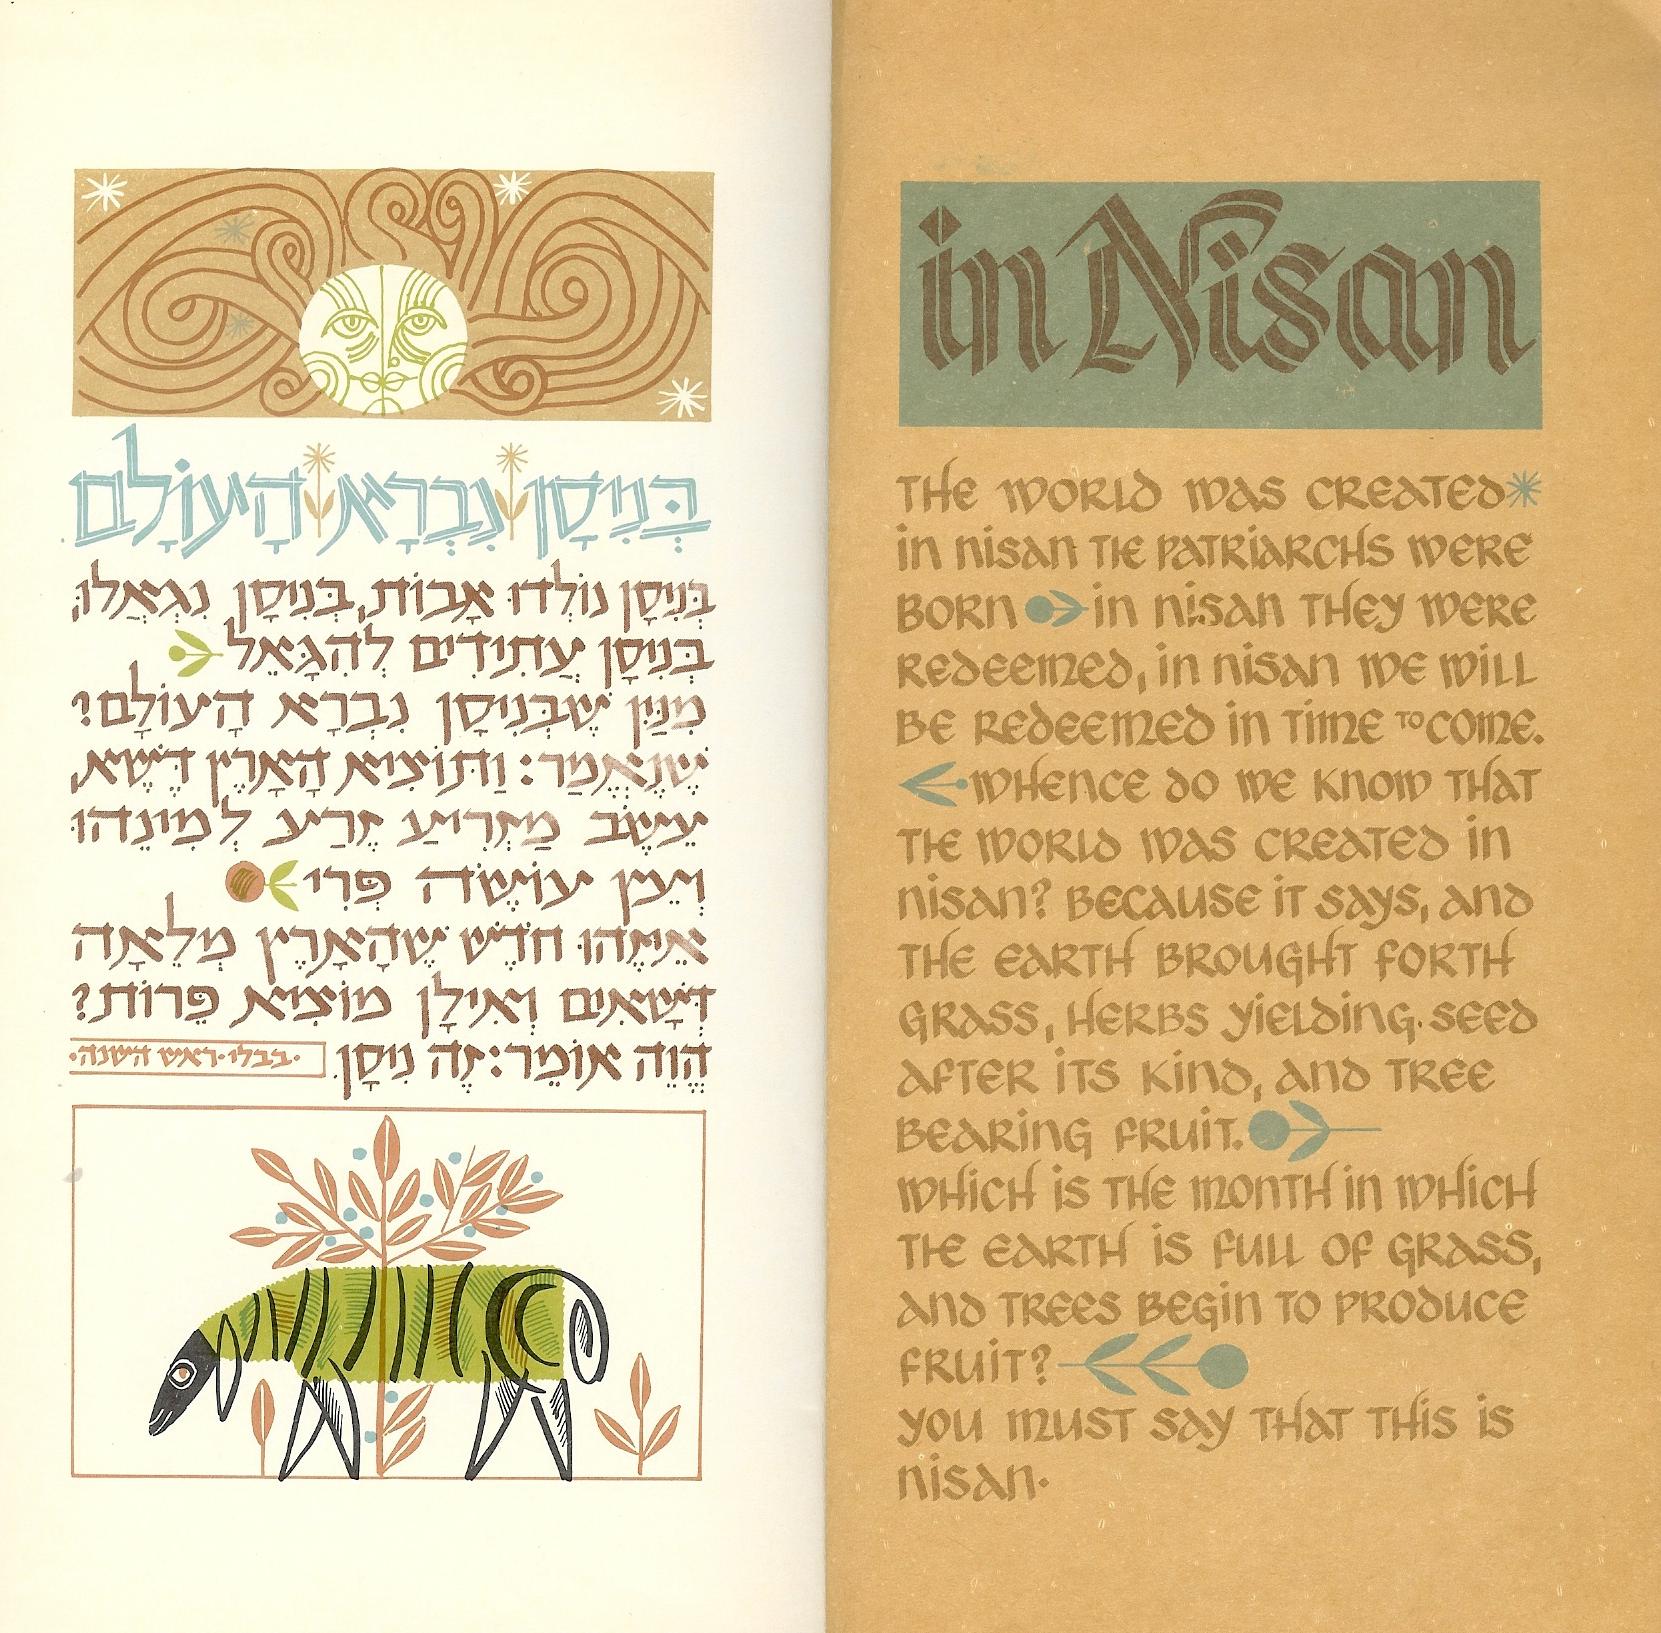 בְּנִיסָן נִבְרָא הָעוֹלָם
בְּנִיסָן נוֹלְדוּ אָבוֹת, בְּנִיסָן נִגְאֲלוּ,
בְּנִיסָן עֲתִידִים לְהִגָּאֵל
מִנַּיִן שֶׁבְּנִיסָן נִבְרָא הָעוֹלָם?
שֶׁנֶּאֱמַר: וַתּוֹצִיא הָאָרֶץ דֶּשֶׁא,
עֵשֶׂב מַזְרִיעַ זֶרַע לְמִינֵהוּ
וְעֵץ עוֹשֶׂה פְּרִי
אֵיזֶהוּ חֹדֶשׁ שֶׁהָאָרֶץ מְלֵאָה
דְּשָׁאִים וְאִילָן מוֹצִיא פֵּרוֹת?
הֱוֵה אוֹמֵר: זֶה נִיסָן.
·בבלי·ראש השנה·
in Nisan
THE WORLD WAS CREATED
in nisan THE PATRIARCHS WERE
BORN in nisan THEY WERE
REDEEMED, in nisan WE WILL
BE REDEEMED in TIME TO COME.
WHENCE DO WE KNOW THAT
THE WORLD WAS CREATED in
nisan? BECAUSE IT SAYS, AND
THE EARTH BROUGHT FORTH
GRASS, HERBS YIELDING SEED
AFTER ITS KIND, AND TREE
BEARING FRUIT.
WHICH IS THE MONTH in WHICH
THE EARTH IS FULL OF GRASS,
AND TREES BEGIN TO PRODUCE
FRUIT?
YOU MUST SAY THAT THIS IS
nisan.